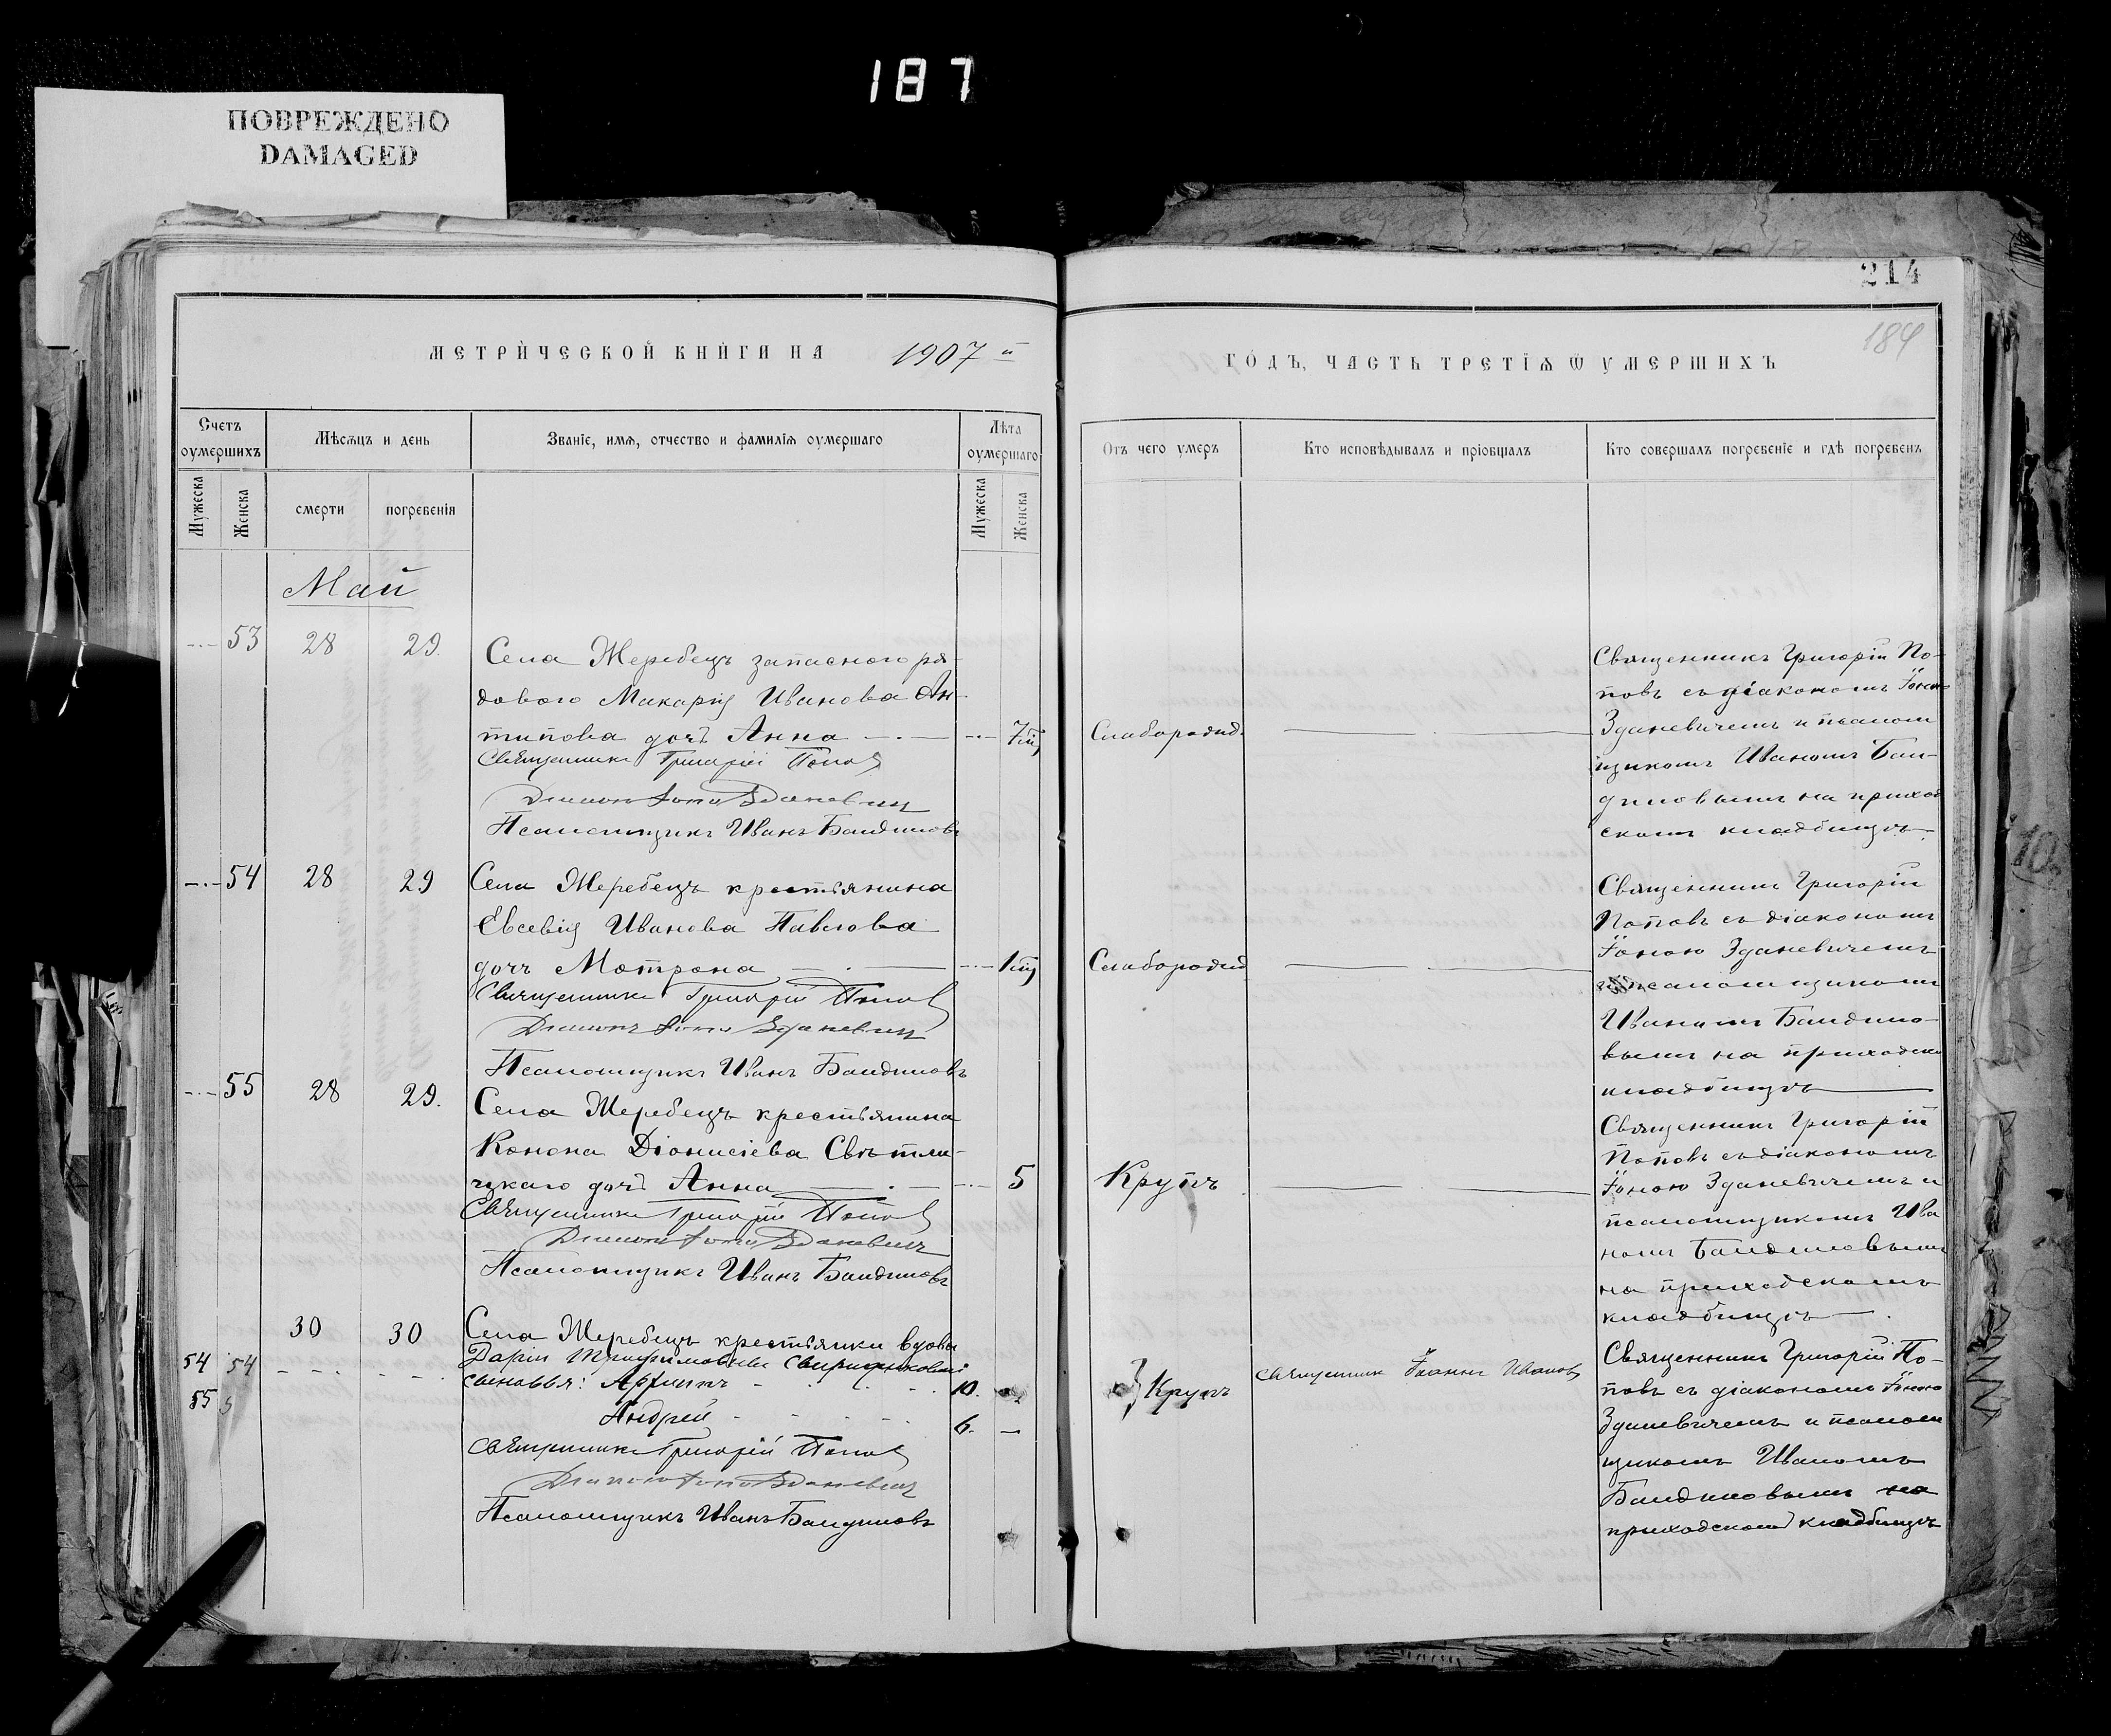 187
ПОВРЕЖДЕНО
DAMAGED
214
184
МЕТРИЧЕСКОЙ КНИГИ НА 1907 й
ГОДЪ, ЧАСТЬ ТРЕТІѦ Ѿ УМЕРШИХЪ
Счетъ оумершихъ
Мѣсѧцъ и день
Званіе, имѧ, отчество и фамиліѧ оумершаго
Лѣта оумершаго
Отъ чего умеръ
Кто исповѣдывалъ и пріобщалъ
Кто совершалъ погребеніе и гдѣ погребенъ
Мужеска
Женска
смерти
погребеніѧ
Мужеска
Женска
Май
53 28 29
Села Жеребецъ запасного ря-
дового Макарія Иванова Ан-
типова дочь Анна
Священникъ Григорій Поповъ
Діаконъ Іона Зданевичъ
Псаломщикъ Иванъ Бандиловъ
Слаборожд.
Священникъ Григорій По-
повъ съ діакономъ Іоною
Зданевичемъ и псалом
щикомъ Иваномъ Бан-
диловымъ на приход
скомъ кладбищѣ
54 28 29
Села Жеребецъ крестьянина
Евсевія Иванова Павлова
дочь Мотрона
Священникъ Григорій Поповъ
Діаконъ Іона Зданевичъ
Псаломщикъ Иванъ Бандиловъ
Слаборожд
Священникъ Григорій
Поповъ съ діакономъ
Іоною Зданевичемъ
и псаломщикомъ
Иваномъ Бандило-
вымъ на приходско
кладбищѣ
55 28 29.
Села Жеребецъ крестьянина
Конона Діонисіева Свѣтли-
чкаго дочь Анна
5
Священникъ Григорій Поповъ
Діаконъ Іона Зданевичъ
Псаломщикъ Иванъ Бандиловъ
Крупъ
Священникъ Григорій
Поповъ съ діакономъ
Іоною Зданевичемъ и
псаломщикомъ Ива
номъ Бандиловымъ
на приходскомъ
кладбищѣ
30 30
Села Жеребецъ крестьянки вдовы
Даріи
54 54
сыновья:
10.
55
Андрей
6.
Священникъ Григорій Поповъ
Діаконъ Іона Зданевичъ
Псаломщикъ Иванъ Бандиловъ
Крупъ
Священник Іоаннъ Ивановъ
Священникъ Григорій По-
повъ съ діакономъ Іоною
Зданевичемъ и псалом
щикомъ Иваномъ
Бандиловымъ на
приходском кладбищѣ